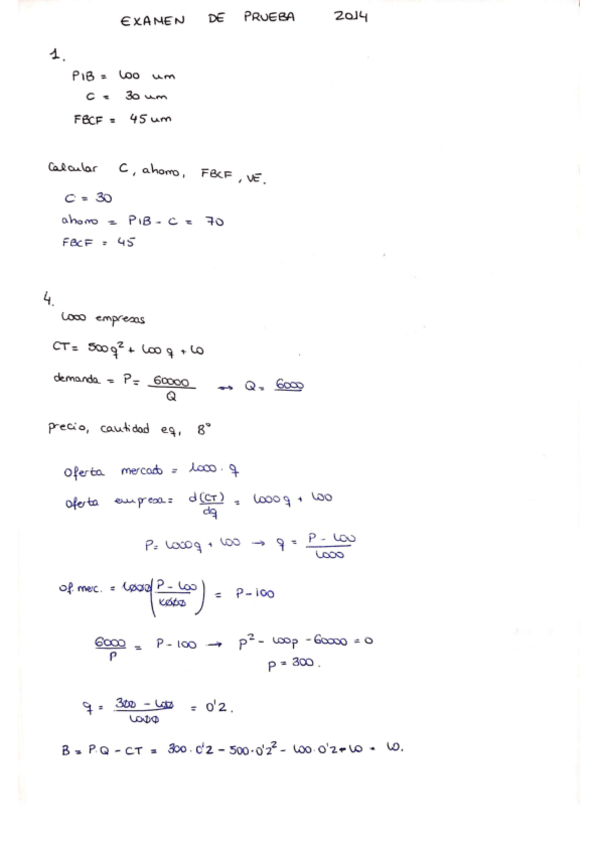 EXAMEN DE PRUEBA 2014
1.
PIB = 100 um
C = 30 um
FBCF = 45 um
Calcular C, ahorro, FBCF, VE.
C = 30
ahorro = PIB - C = 70
FBCF = 45
4.
1000 empresas
CT = 500q² + 100q + 10
demanda = P = 60000/Q → Q = 6000
precio, cantidad eq, Bº
Oferta mercado = 1000 · q
Oferta empresa = d(CT)/dq = 1000q + 100
P = 1000q + 100 → q = (P - 100)/1000
Of. merc. = 1000((P - 100)/1000) = P - 100
6000/P = P - 100 → p² - 100p - 60000 = 0
p = 300.
q = (300 - 100)/1000 = 0'2.
B = P·Q - CT = 300·0'2 - 500·0'2² - 100·0'2 - 10 = 10.